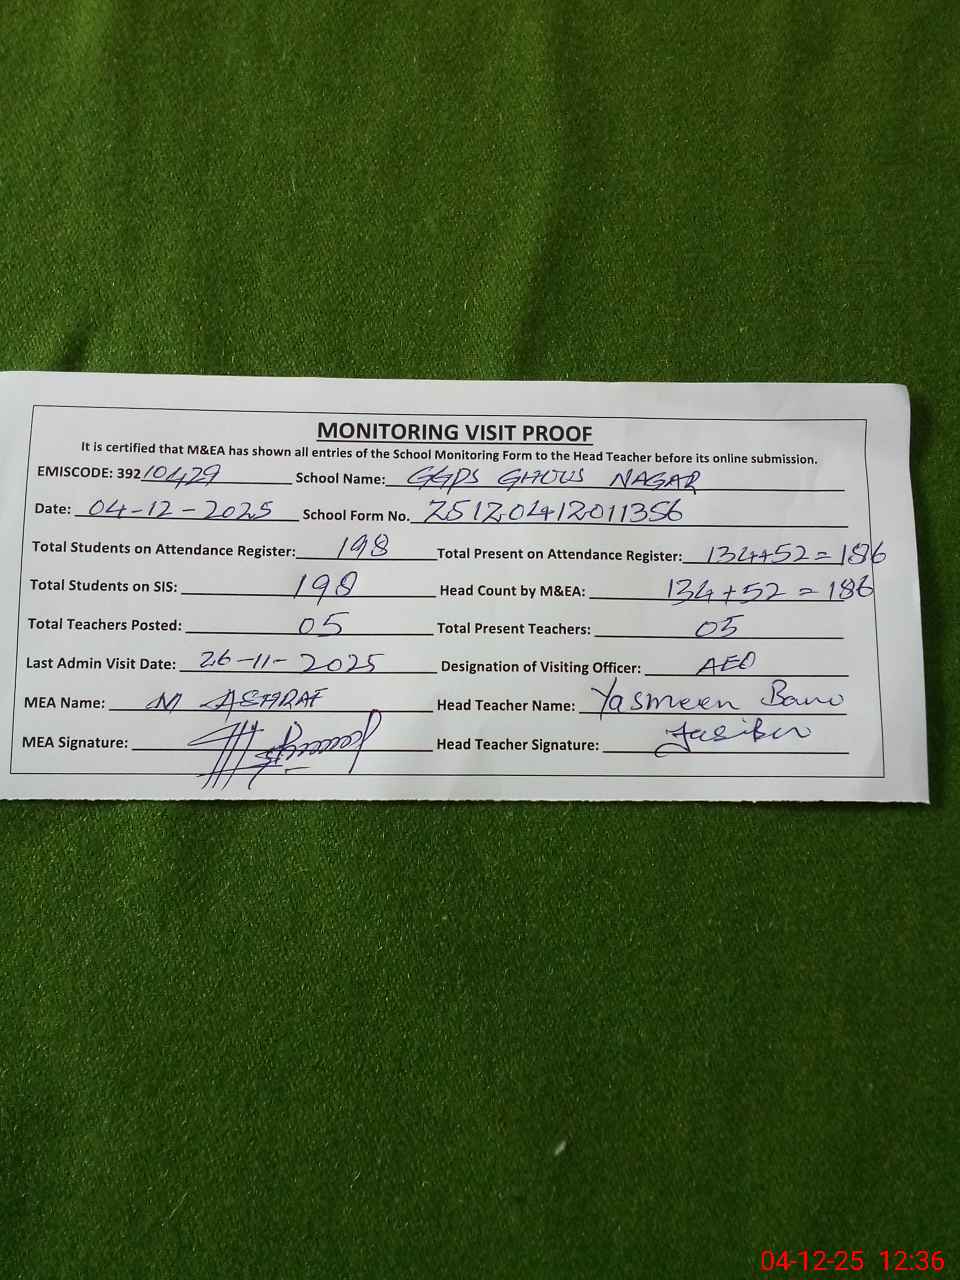 MONITORING VISIT PROOF
It is certified that M&EA has shown all entries of the School Monitoring Form to the Head Teacher before its online submission.
EMISCODE: 39210429 School Name: GGPS GHOUS NAGAR
Date: 04-12-2025 School Form No. 25120412011356
Total Students on Attendance Register: 198 Total Present on Attendance Register: 134+52=186
Total Students on SIS: 198 Head Count by M&EA: 134+52=186
Total Teachers Posted: 05 Total Present Teachers: 05
Last Admin Visit Date: 26-11-2025 Designation of Visiting Officer: AEO
MEA Name: M ASHRAF Head Teacher Name: Yasmeen Bano
MEA Signature: Head Teacher Signature:
04-12-25 12:36